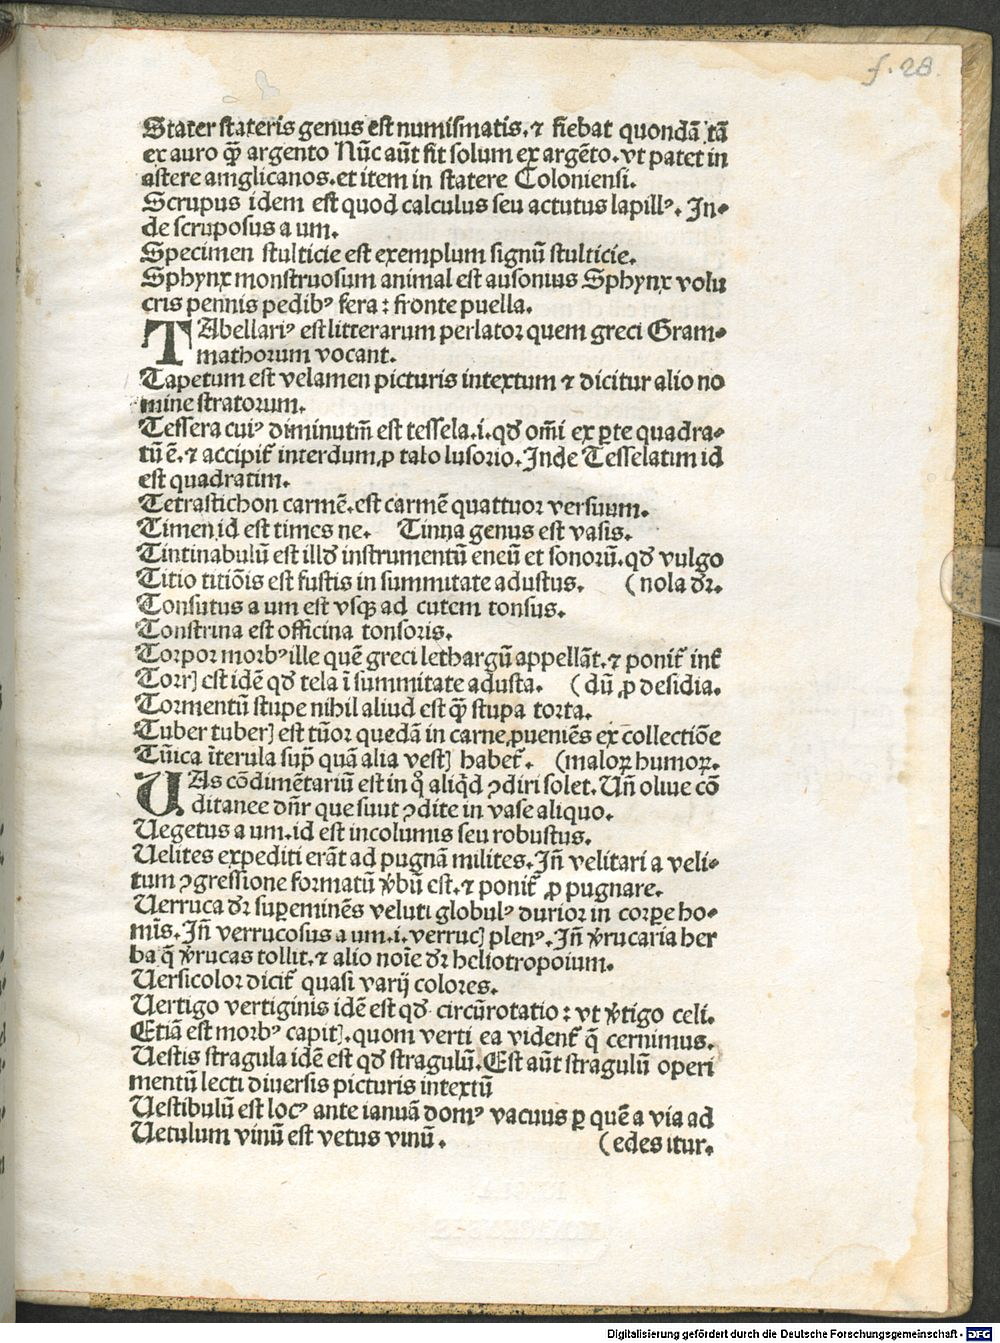 f. 28.
Stater stateris genus est numismatis. ⁊ fiebat quondā tā
ex auro ꝙ̄ argento Nūc aūt fit solum ex argēto. vt patet in
astere amglicanos. et item in statere Coloniensi.
Scrupus idem est quod calculus seu actutus lapillꝰ. In-
de scruposus a um.
Specimen stulticie est exemplum signū stulticie.
Sphynx monstruosum animal est ausonius Sphynx volu
cris pennis pedibꝰ fera : fronte puella.
TAbellariꝰ est litterarum perlator quem greci Gram-
mathorum vocant.
Tapetum est velamen picturis intextum ⁊ dicitur alio no
mine stratorum.
Tessera cuiꝰ diminutm̄ est tessela. i. qd̕ om̄i ex ꝑte quadra-
tū ē. ⁊ accipit̄ interdum ꝓ talo lusorio. Inde Tesselatim id
est quadratim.
Tetrastichon carmē. est carmē quattuor versuum.
Timen id est times ne. Tinna genus est vasis.
Tintinabulū est illd̕ instrumentū eneū et sonorū. qd̕ vulgo
Titio titiōis est fustis in summitate adustus. (nola dr̄.
Tonsutus a um est vsqꝫ ad cutem tonsus.
Tonstrina est officina tonsoris.
Torpor morbꝰ ille quē greci lethargū appellāt. ⁊ ponit̄ int̄
Torrꝭ est idē qd̕ tela ī summitate adusta. (dū ꝓ desidia.
Tormentū stupe nihil aliud est ꝙ̄ stupa torta.
Tuber tuberꝭ est tūor quedā in carne ꝓueniēs ex collectiōe
Tūica īterula sup̄ quā alia vestꝭ habet̄. (maloꝝ humoꝝ.
VAs cōdimētariū est in q̊ aliqd̕ ꝯdiri solet. Un̄ oliue cō
ditanee dn̄r que suut ꝯdite in vase aliquo.
Uegetus a um. id est incolumis seu robustus.
Uelites expediti erāt ad pugnā milites. In̄ velitari a veli-
tum ꝯgressione formatū v̕bū est. ⁊ ponit̄ ꝓ pugnare.
Uerruca dr̄ suꝑeminēs veluti globulꝰ durior in corꝑe ho-
mīs. In̄ verrucosus a um. i. verrucꝭ plenꝰ. In̄ v̕rucaria her
ba q̄ v̕rucas tollit. ⁊ alio noīe dr̄ heliotropoium.
Uersicolor dicit̄ quasi varij colores.
Uertigo vertiginis idē est qd̕ circūrotatio : vt v̕tigo celi.
Etiā est morbꝰ capitꝭ. quom verti ea vident̄ q̄ cernimus.
Uestis stragula idē est qd̕ stragulū. Est aūt stragulū operi
mentū lecti diuersis picturis intextū
Uestibulū est locꝰ ante ianuā domꝰ vacuus ꝑ quē a via ad
Uetulum vinū est vetus vinū. (edes itur.
Digitalisierung gefördert durch die Deutsche Forschungsgemeinschaft - DFG